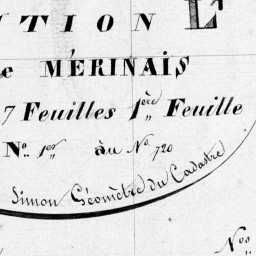 TION L
e MÉRINAIS
7 Feuilles 1ère Feuille
No. 1er au No. 720
Simon Géomètre du Cadastre
Nos